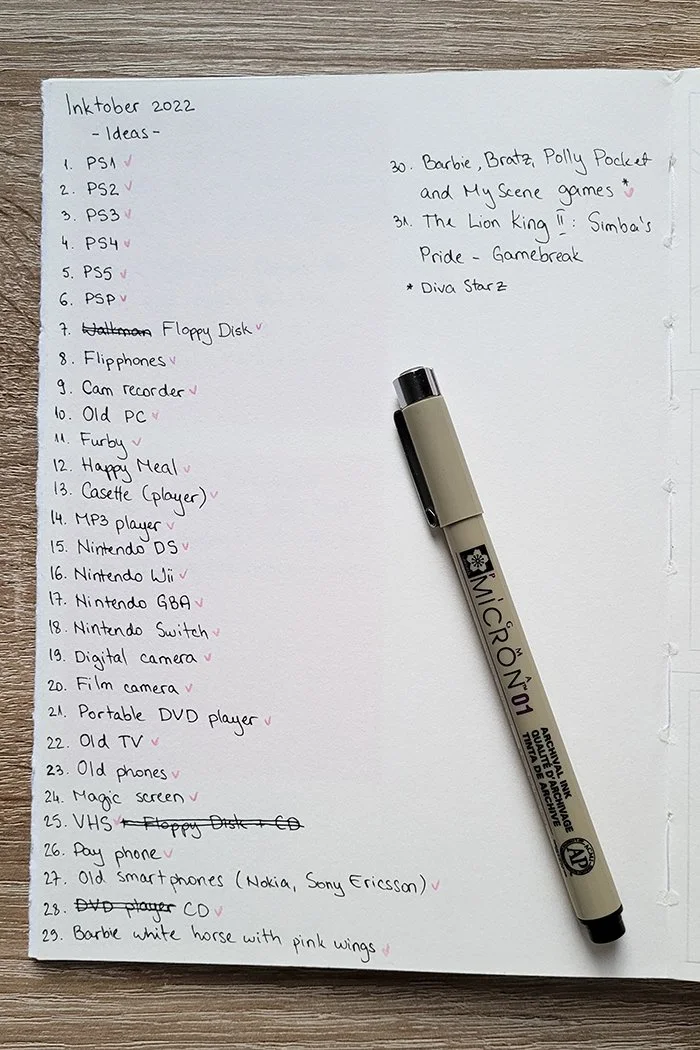 Inktober 2022
- Ideas -
1. PS1 ✓
2. PS2 ✓
3. PS3 ✓
4. PS4 ✓
5. PS5 ✓
6. PSP ✓
7. ~~Walkman~~ Floppy Disk ✓
8. Flipphones ✓
9. Cam recorder ✓
10. Old PC ✓
11. Furby ✓
12. Happy Meal ✓
13. Casette (player) ✓
14. MP3 player ✓
15. Nintendo DS ✓
16. Nintendo Wii ✓
17. Nintendo GBA ✓
18. Nintendo Switch ✓
19. Digital camera ✓
20. Film camera ✓
21. Portable DVD player ✓
22. Old TV ✓
23. Old phones ✓
24. Magic screen ✓
25. VHS ✓ ~~+ Floppy Disk + CD~~
26. Pay phone ✓
27. Old smartphones (Nokia, Sony Ericsson) ✓
28. ~~DVD player~~ CD ✓
29. Barbie white horse with pink wings ✓
30. Barbie, Bratz, Polly Pocket
and My Scene games * ✓
31. The Lion King II: Simba's
Pride - Gamebreak
* Diva Starz
PIGMA
MICRON™ 01
ARCHIVAL INK
QUALITÉ D'ARCHIVAGE
TINTA DE ARCHIVE
AP